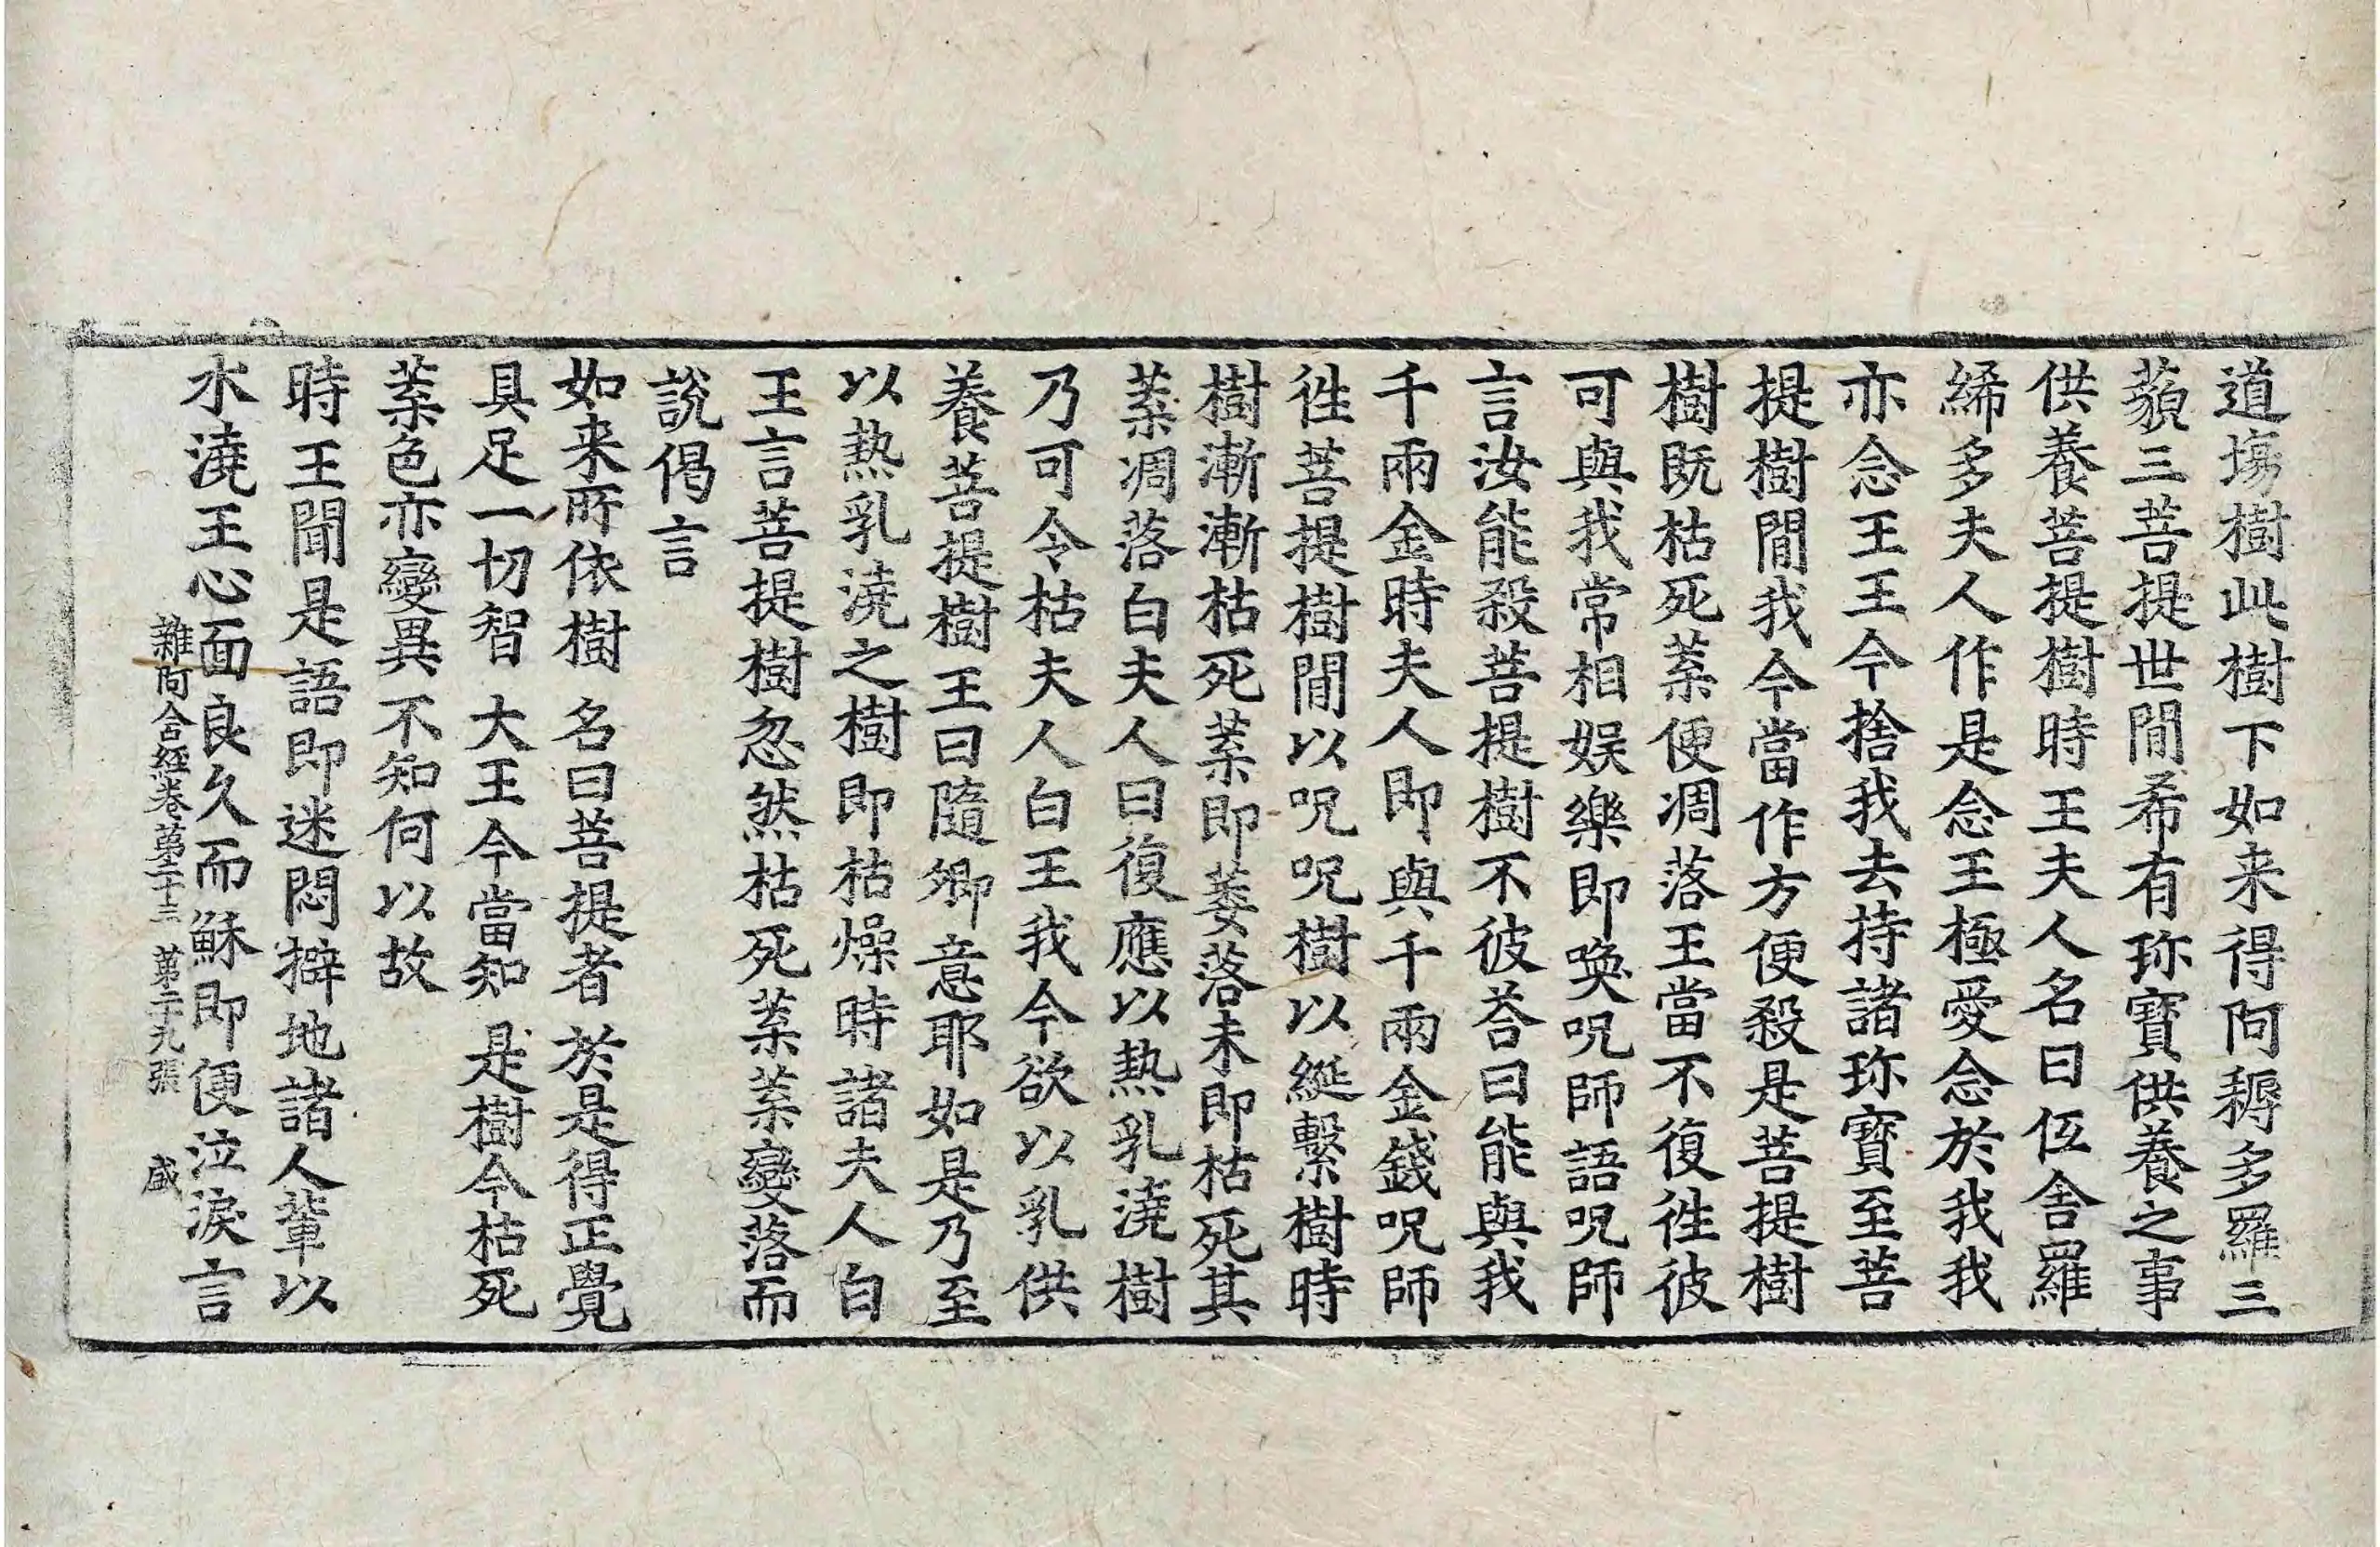 道塲樹此樹下如来得阿耨多羅三
藐三菩提世閒希有珎寶供養之事
供養菩提樹時王夫人名曰伍舍羅
絺多夫人作是念王極愛念於我我
亦念王王今捨我去持諸珎寶至菩
提樹閒我今當作方便殺是菩提樹
樹既枯死葉便凋落王當不復徃彼
可與我常相娛樂即喚呪師語呪師
言汝能殺菩提樹不彼荅曰能與我
千兩金時夫人即與千兩金錢呪師
徃菩提樹閒以呪呪樹以綖繫樹時
樹漸漸枯死葉即萎落未即枯死其
葉凋落白夫人曰復應以熱乳澆樹
乃可令枯夫人白王我今欲以乳供
養菩提樹王曰隨卿意耶如是乃至
以熱乳澆之樹即枯燥時諸夫人白
王言菩提樹忽然枯死葉葉變落而
說偈言
如来所依樹　名曰菩提者　於是得正覺
具足一切智　大王今當知　是樹今枯死
葉色亦變異　不知何以故
時王聞是語即迷悶擗地諸人輩以
水澆王心面良久而穌即便泣淚言
雜阿含經卷第二十三　第二十九張　盛